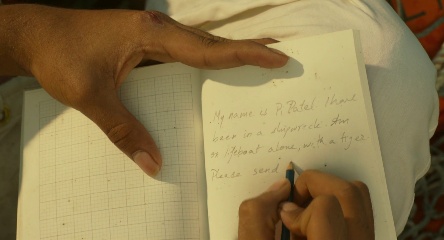 My name is Pi Patel I have
been in a shipwreck Am
on lifeboat alone, with a tiger
Please send